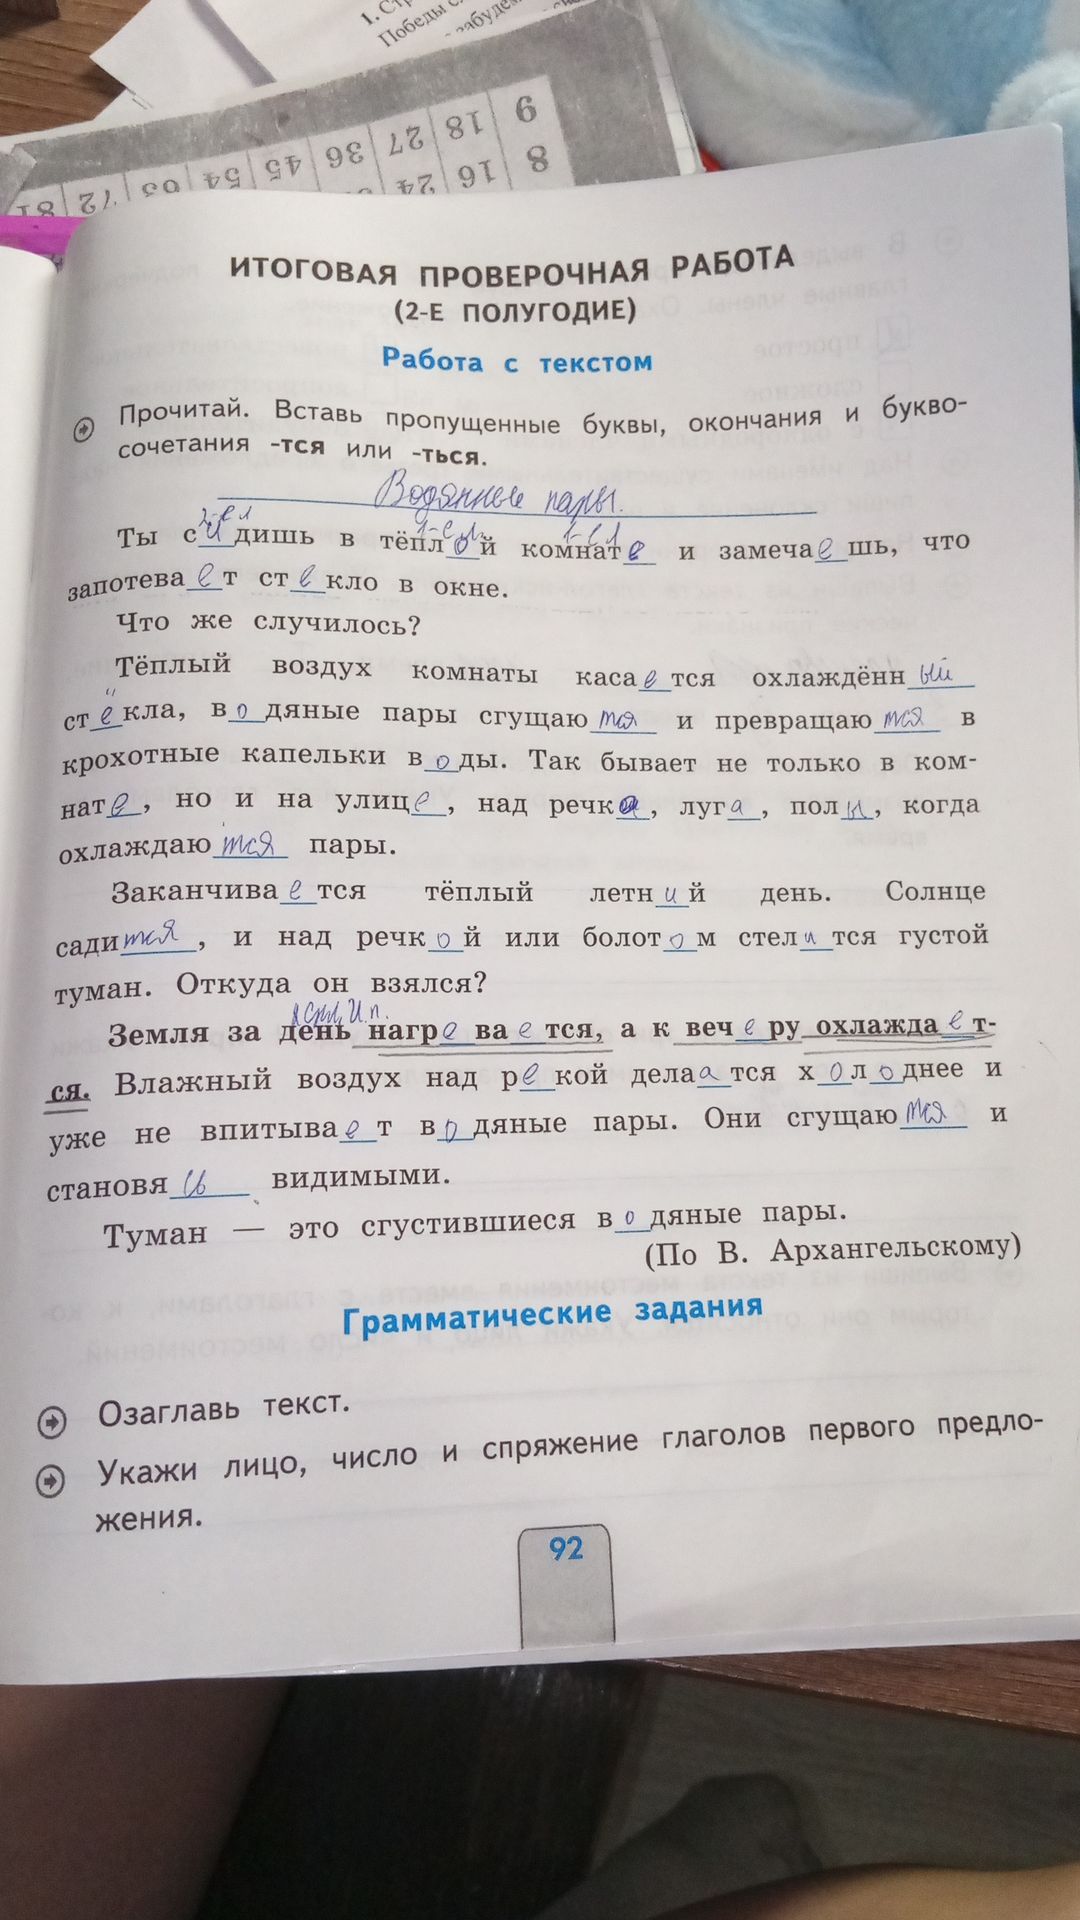 1. Ст
Победы с
забудем
9 18 27 36 45 54 63 72 81
8 16 24
ИТОГОВАЯ ПРОВЕРОЧНАЯ РАБОТА
(2-Е ПОЛУГОДИЕ)
Работа с текстом
Прочитай. Вставь пропущенные буквы, окончания и букво-
сочетания -тся или -ться.
Водянные пары.
2-е л 1-е л. 1-е л
Ты сидишь в тёплой комнате и замечаешь, что
запотевает стекло в окне.
Что же случилось?
Тёплый воздух комнаты касается охлаждённый
стёкла, водяные пары сгущаются и превращаются в
крохотные капельки воды. Так бывает не только в ком-
нате, но и на улице, над речка, луга, полы, когда
охлаждаются пары.
Заканчивается тёплый летний день. Солнце
садится, и над речкой или болотом стелится густой
туман. Откуда он взялся?
И.п.
Земля за день нагревается, а к вечеру охлаждает-
ся. Влажный воздух над рекой делаатся холоднее и
уже не впитывает водяные пары. Они сгущаются и
становясь видимыми.
Туман — это сгустившиеся водяные пары.
(По В. Архангельскому)
Грамматические задания
Озаглавь текст.
Укажи лицо, число и спряжение глаголов первого предло-
жения.
92